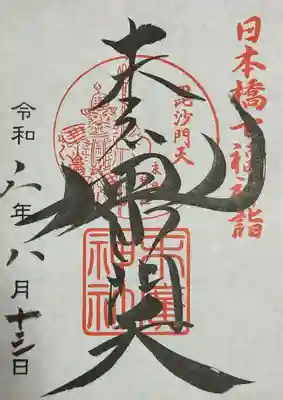 日本橋七福神詣
毘沙門天
末廣毘沙門天
末廣神社
令和六年八月十三日